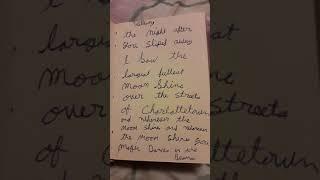 the night after
you sliped away
I saw the
largest fullest
moon shine
over the streets
of Charlottetown
and whenever the
moon shine and whenever
the moon shine you
Dance in
Beams